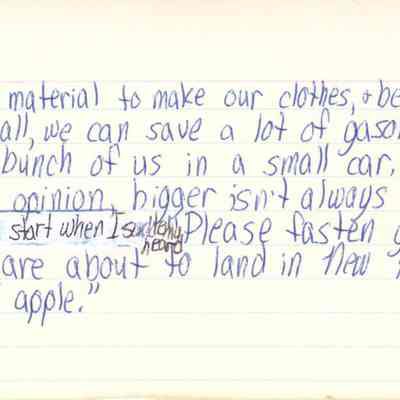 material to make our clothes, + be
all, we can save a lot of gaso
bunch of us in a small car.
opinion, bigger isn't always
start when I suddenly heard "Please fasten
are about to land in New
apple."